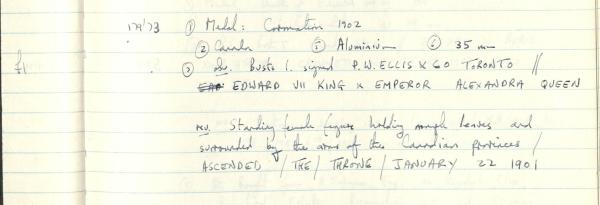 179'73 ① Medal: Coronation 1902
② Canada ⑤ Aluminium ⑥ 35 mm
£1 ③ obv. Busts l. signed P.W. ELLIS & CO TORONTO //
EDWARD VII KING & EMPEROR ALEXANDRA QUEEN
rev. Standing female figure holding maple leaves and
surrounded by the arms of the Canadian provinces /
ASCENDED / THE / THRONE / JANUARY 22 1901